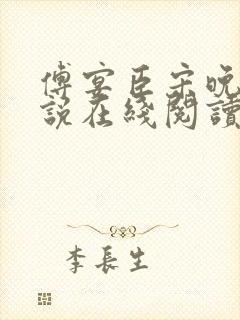 傅宴臣宋晚
說在綫閱讀
李長生